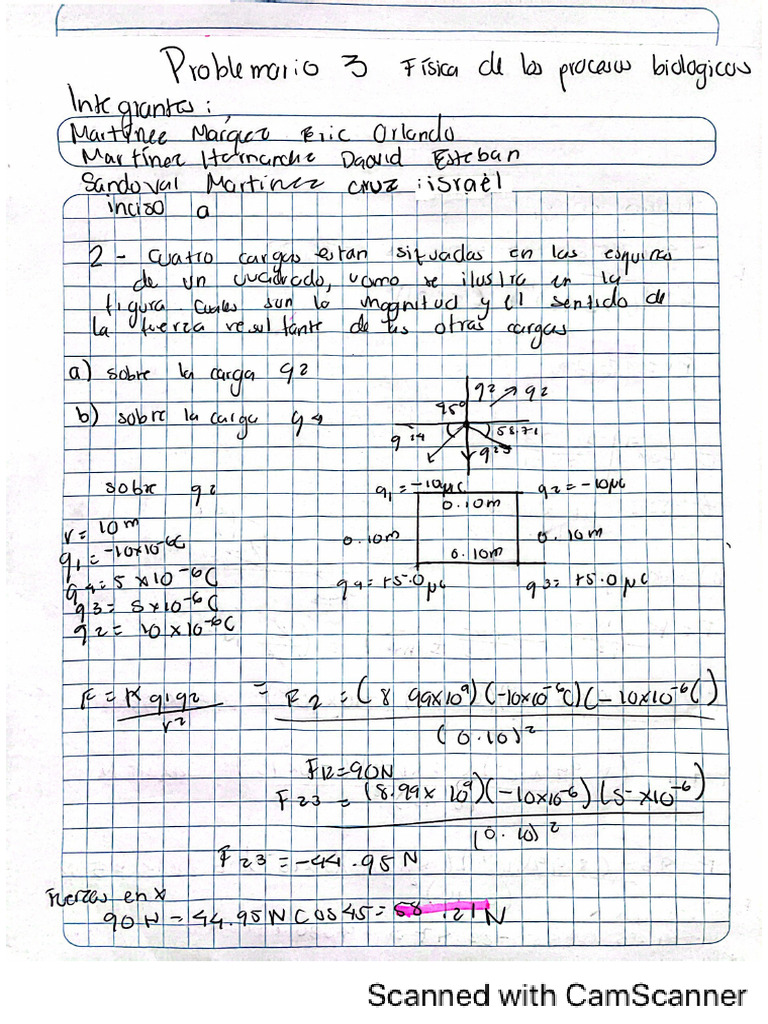 Problemario 3 Física de los procesos biologicos
Integrantes:
Martínez Márquez Eric Orlando
Martínez Hernandez Daavid Esteban
Sandoval Martinez cruz israel
inciso a
2 - Cuatro cargas estan situadas en las esquinas
de un cuadrado, como se ilustra en la
figura. Cuales son la magnitud y el sentido de
la fuerza resultante de las otras cargas
a) sobre la carga q2
b) sobre la carga q4
q2 q2
45°
q24 58.71
q23
sobre q2
q1 = -10μC q2 = -10μC
0.10m
0.10m 0.10m
0.10m
q4 = +5.0μC q3 = +5.0μC
r = 10m
q1 = -10x10-6C
q4 = 5 x10-6C
q3 = 5x10-6C
q2 = 10 x10-6C
F = K q1q2 / r2 = F2 = (8 99x109)(-10x10-6C)(-10x10-6C) / (0.10)2
F12=90N
F23 = (8.99x 109)(-10x10-6)(5 x10-6) / (0.10)2
F23 = -44.95N
Fuerzas en x
90N - 44.95N Cos 45 = 58.21N
Scanned with CamScanner